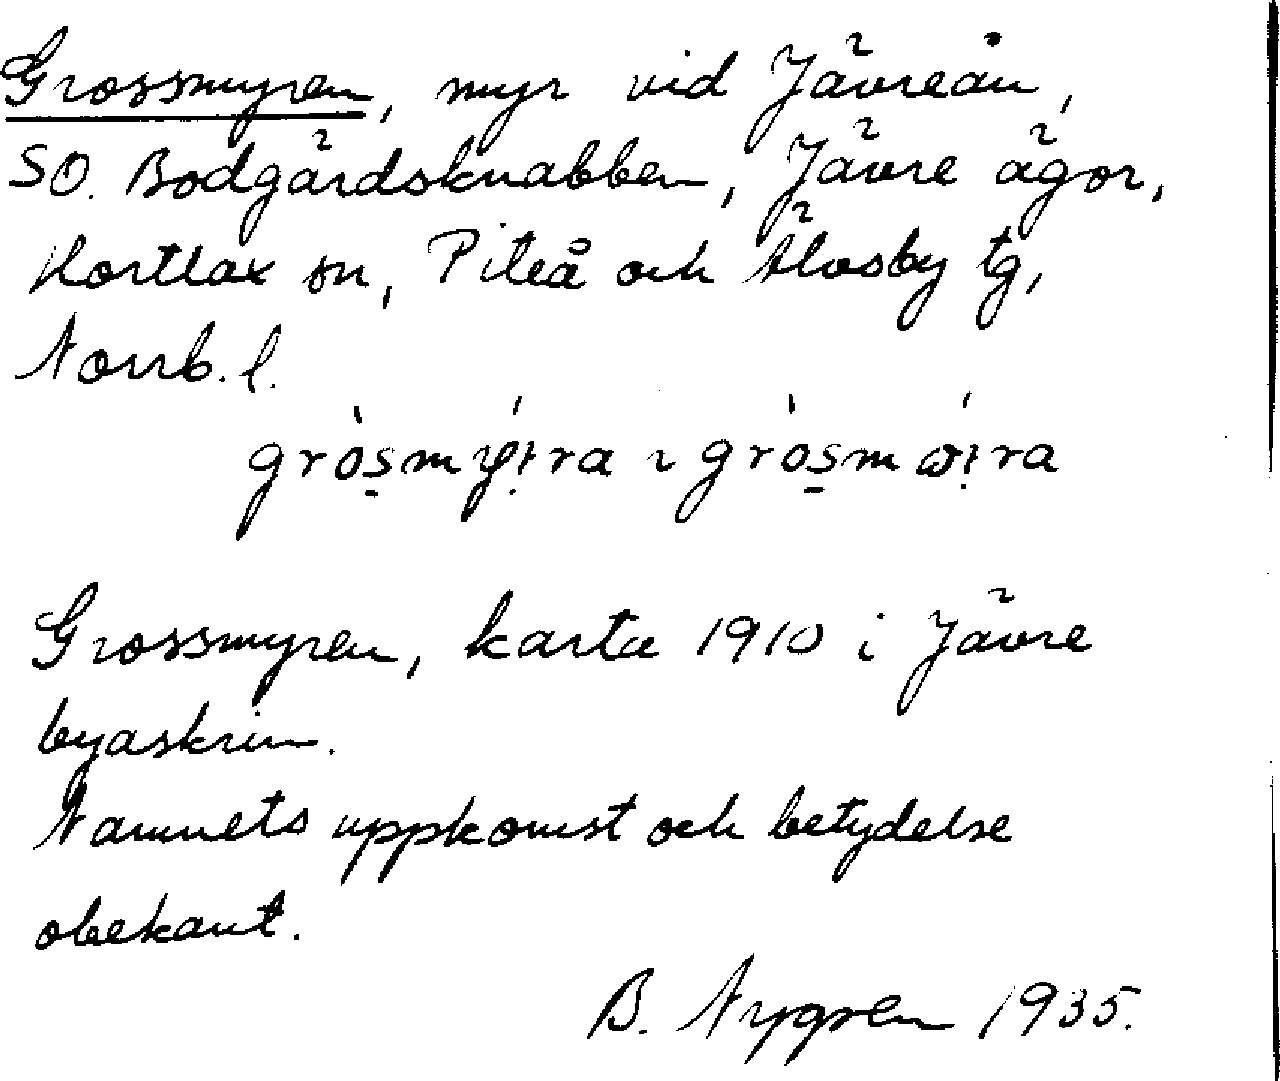 Grossmyren, myr vid Jävreån,
SO. Bodgärdsknabben, Jävre ägor,
Hortlax sn, Piteå och Älvsby tg,
Norrb. l.
Grossmyren, karta 1910 i Jävre
byaskrin.
Namnets uppkomst och betydelse
obekant.
B. Nygren 1935.